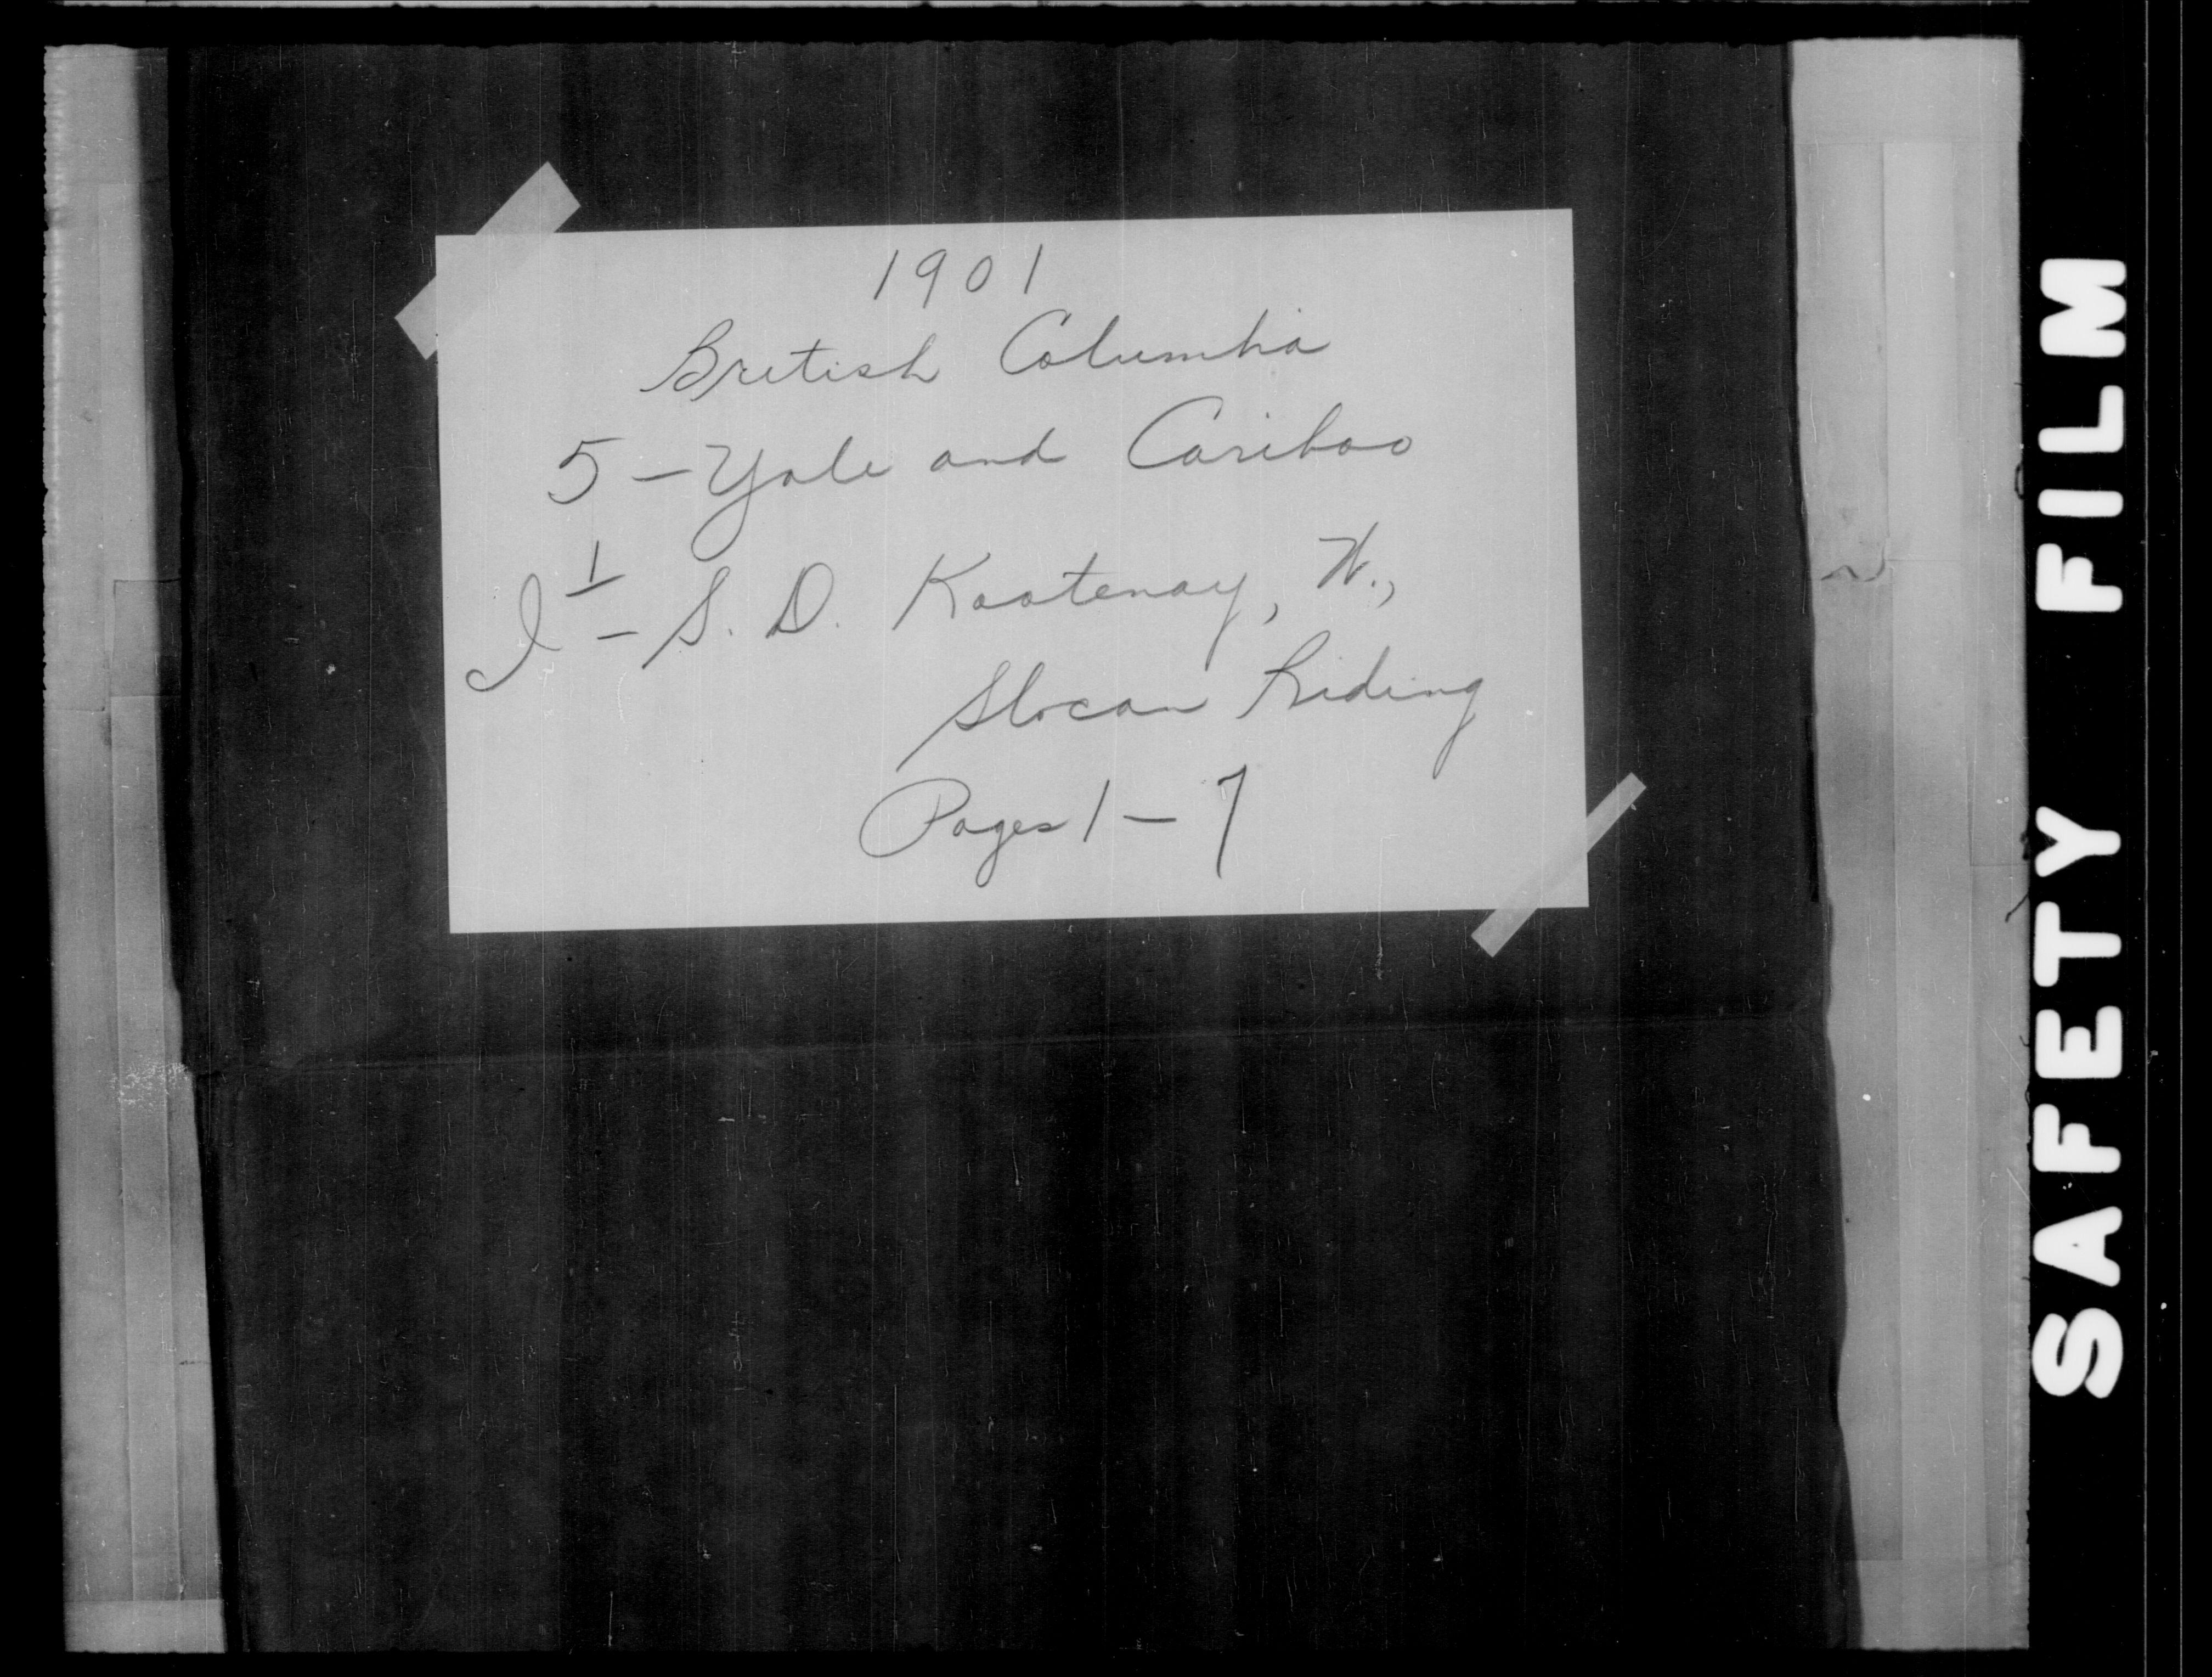 1901
British Columbia
5 - Yale and Cariboo
I 1 - S. D. Kootenay, W.,
Slocan Riding
Pages 1 - 7
SAFETY FILM